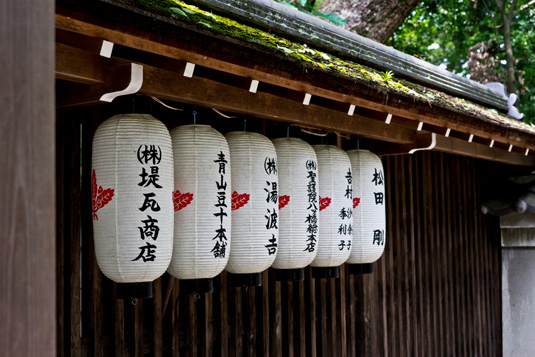 ㈱堤瓦商店
青山豆十本舗
㈱湯波吉
㈱聖護院八ッ橋総本店
吉村季利子
松田剛